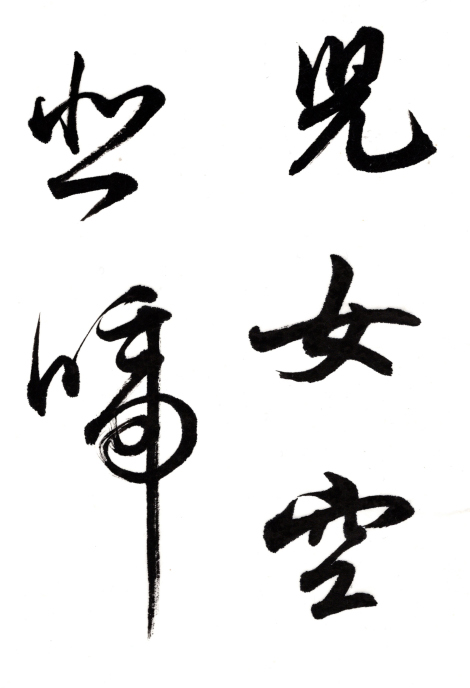 兒女空
悲啼